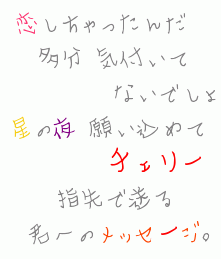 恋しちゃったんだ
多分 気付いて
ないでしょ
星の夜 願い込めて
チェリー
指先で送る
君へのメッセージ。